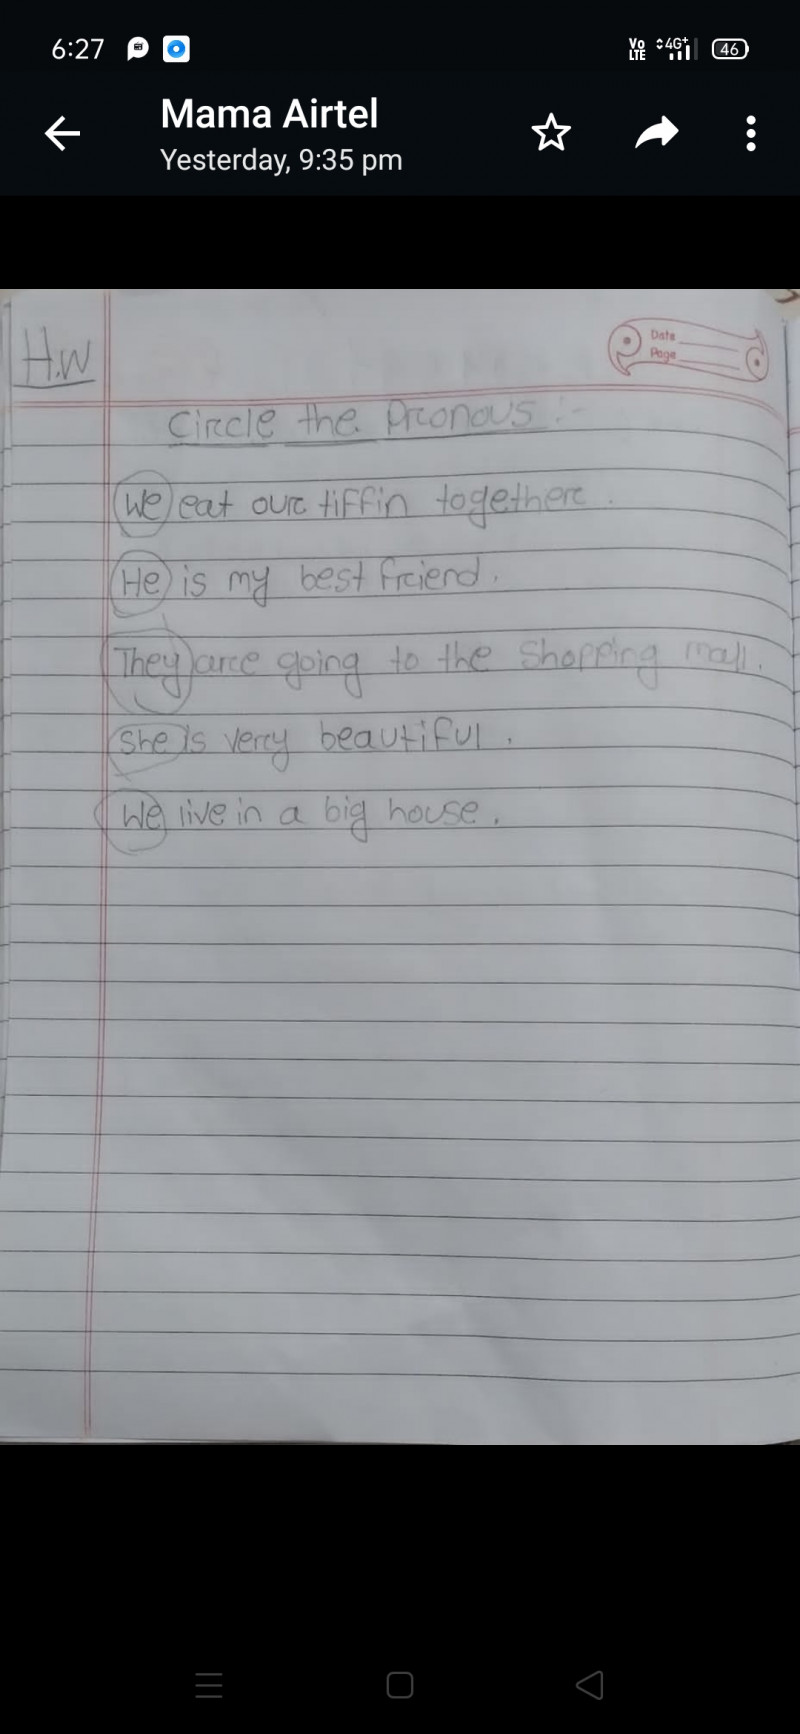 6:27
Vo LTE 4G+ 46
Mama Airtel
Yesterday, 9:35 pm
H.W
Date
Page
Circle the Pronous :-
We eat our tiffin together.
He is my best friend.
They are going to the Shopping mall.
She is very beautiful.
We live in a big house.